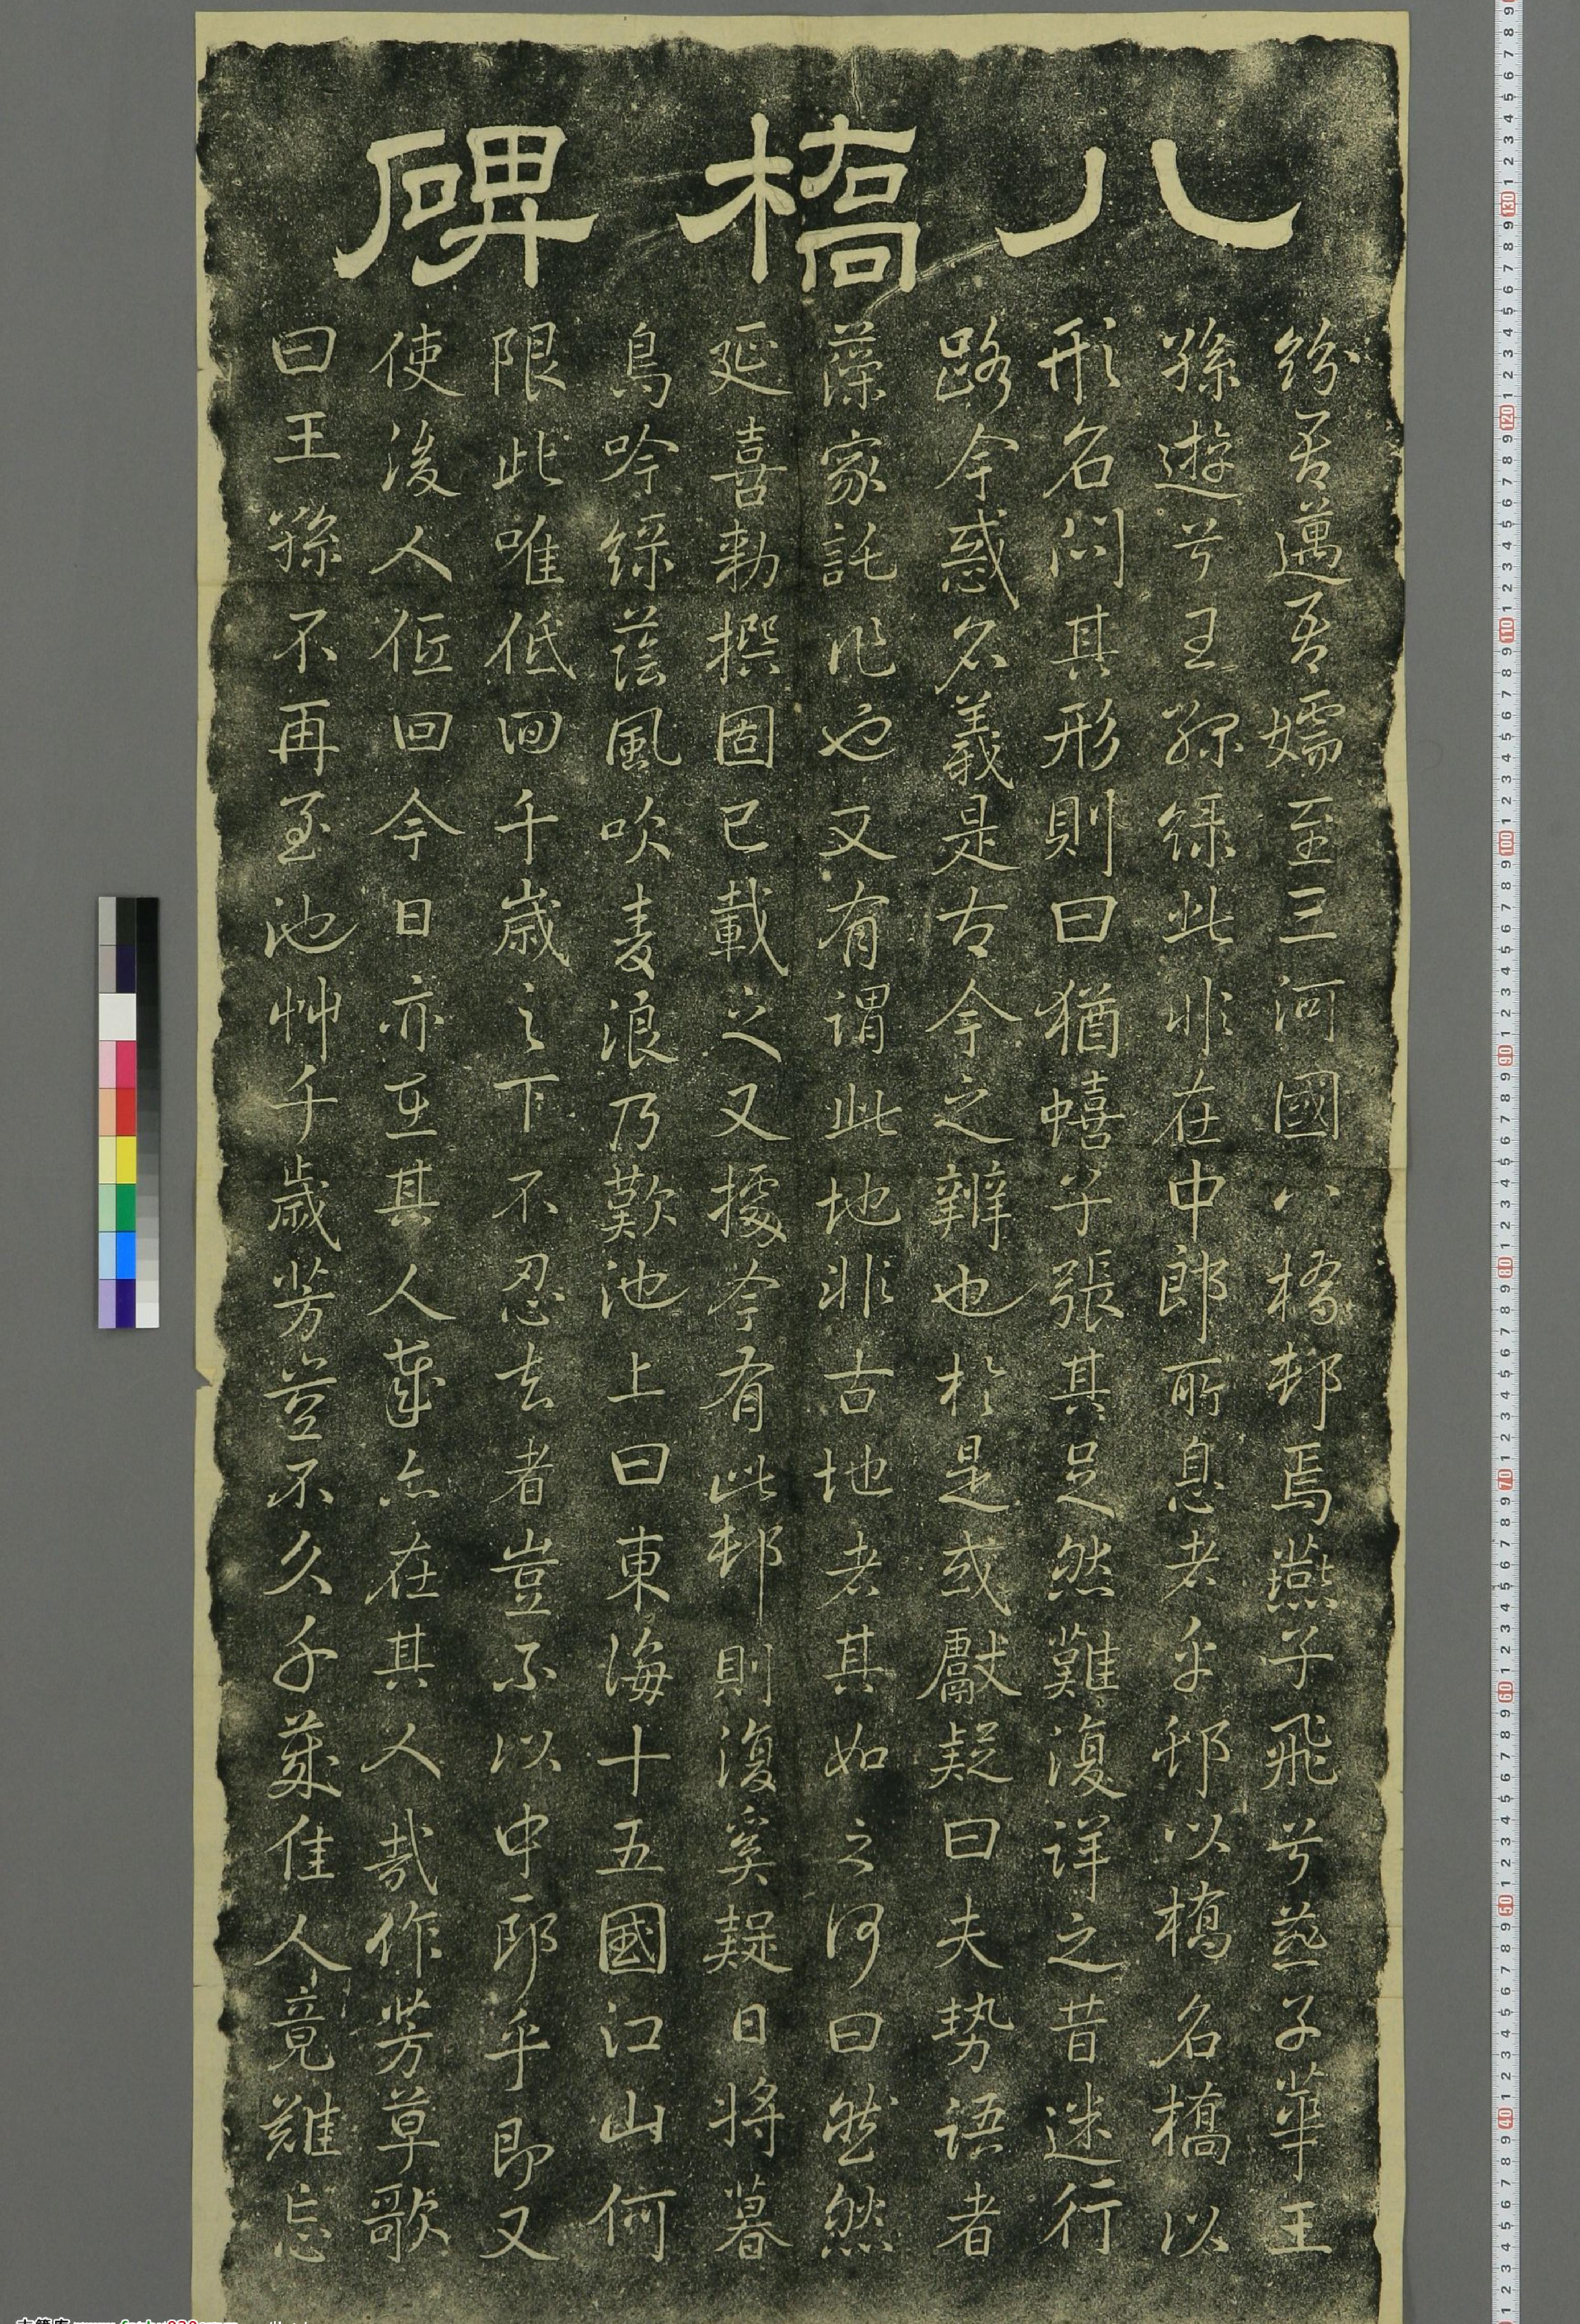 八橋碑
紛吾邁吾嬬至三河國八橋邨焉燕子飛兮燕子華王
孫遊兮王孫綠此非在中郎所息者乎邨以橋名橋以
形名問其形則曰猶蟢子張其足然難復詳之昔迷行
路今惑名義是古今之辨也於是或獻疑曰夫勢語者
藻家託作也又有謂此地非古地者其如之何曰然然
延喜勅撰固已載之又據今有此邨則復奚疑日將暮
鳥吟綠蔭風吹麦浪乃歎池上曰東海十五國江山何
限此唯低回千歲之下不忍去者豈不以中郎乎即又
使後人低回今日亦在其人華亦在其人哉作芳草歌
曰王孫不再至池艸千歲芳豈不久千歲佳人竟難忘